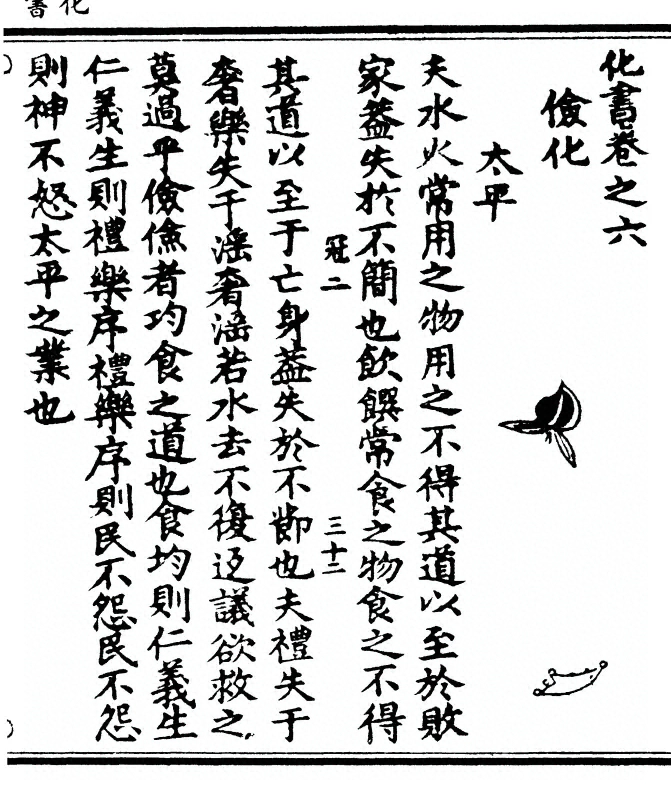 化書
化書卷之六
儉化
太平
夫水火常用之物用之不得其道以至於敗
家蓋失於不簡也飲饌常食之物食之不得
冠二
三十二
其道以至于亡身蓋失於不節也夫禮失于
奢樂失于淫奢淫若水去不復返議欲救之
莫過乎儉儉者均食之道也食均則仁義生
仁義生則禮樂序禮樂序則民不怨民不怨
則神不怒太平之業也